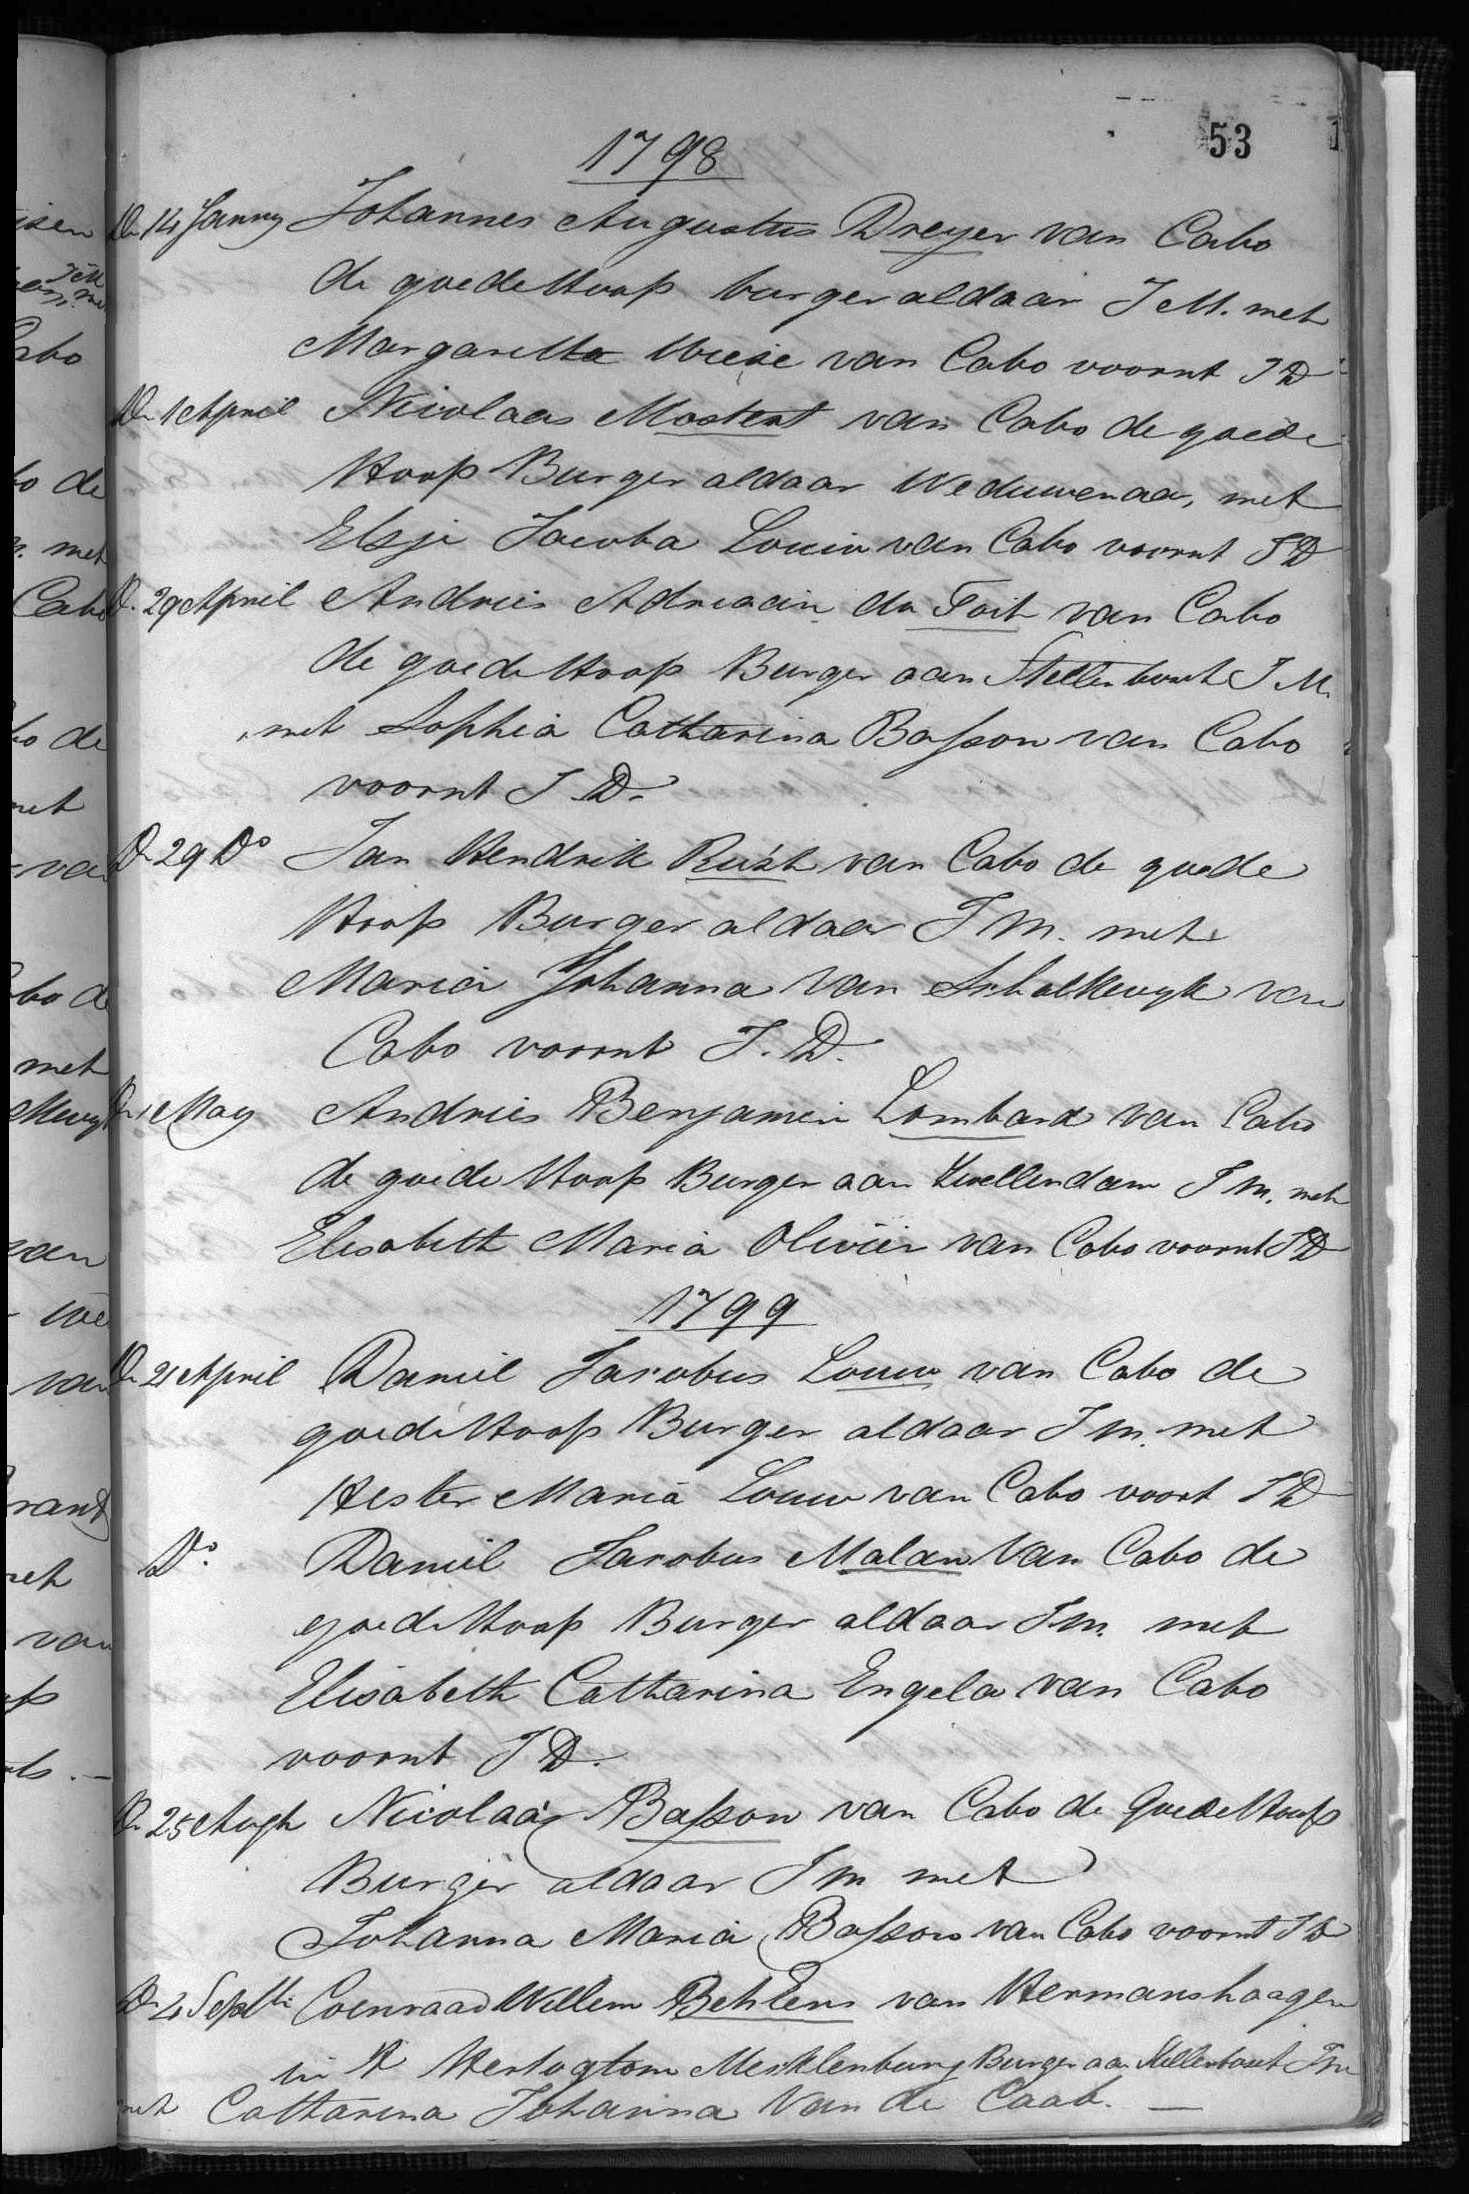 53
1798
Dn 14 Janny Johannes Augustus Dreyer van Cabo
de goede Hoop burger aldaar J M. met
Margaretta Wiese van Cabo voornt J D
Dn 1 April Nicolaas Mostert van Cabo de goede
Hoop Burger aldaar Weduwenaar, met
Elsje Jacoba Louw van Cabo voornt J D
Dn 29 April Andries Adriaan du Toit van Cabo
de goede Hoop Burger aan Stellenbosch J M.
met Sophia Catharina Basson van Cabo
voornt J D.
Dn 29 Do Jan Hendrik Rust van Cabo de goede
Hoop Burger aldaar J M. met
Maria Johanna van Schalkwyk van
Cabo voornt J. D.
Dn 1 May Andries Benjamin Lombard van Cabo
de goede Hoop Burger aan Zwellendam J M. met
Elisabeth Maria Olivier van Cabo voornt J D
1799
Dn 21 April Daniel Jacobus Louw van Cabo de
goede Hoop Burger aldaar J M. met
Hester Maria Louw van Cabo voort J D
Do. Daniel Jacobus Malan van Cabo de
goede Hoop Burger aldaar J M. met
Elisabeth Catharina Engela van Cabo
voornt J D.
Dn 25 Augt Nicolaas Basson van Cabo de Goede Hoop
Burger aldaar J M met
Johanna Maria Basson van Cabo voornt J D
Dn Coenraad Willem Behlens van Hermanshaagen
in 't Hertogtom Mecklenburg Burger aan Stellenbosch J M
met Catharina Johanna van de Caab. —